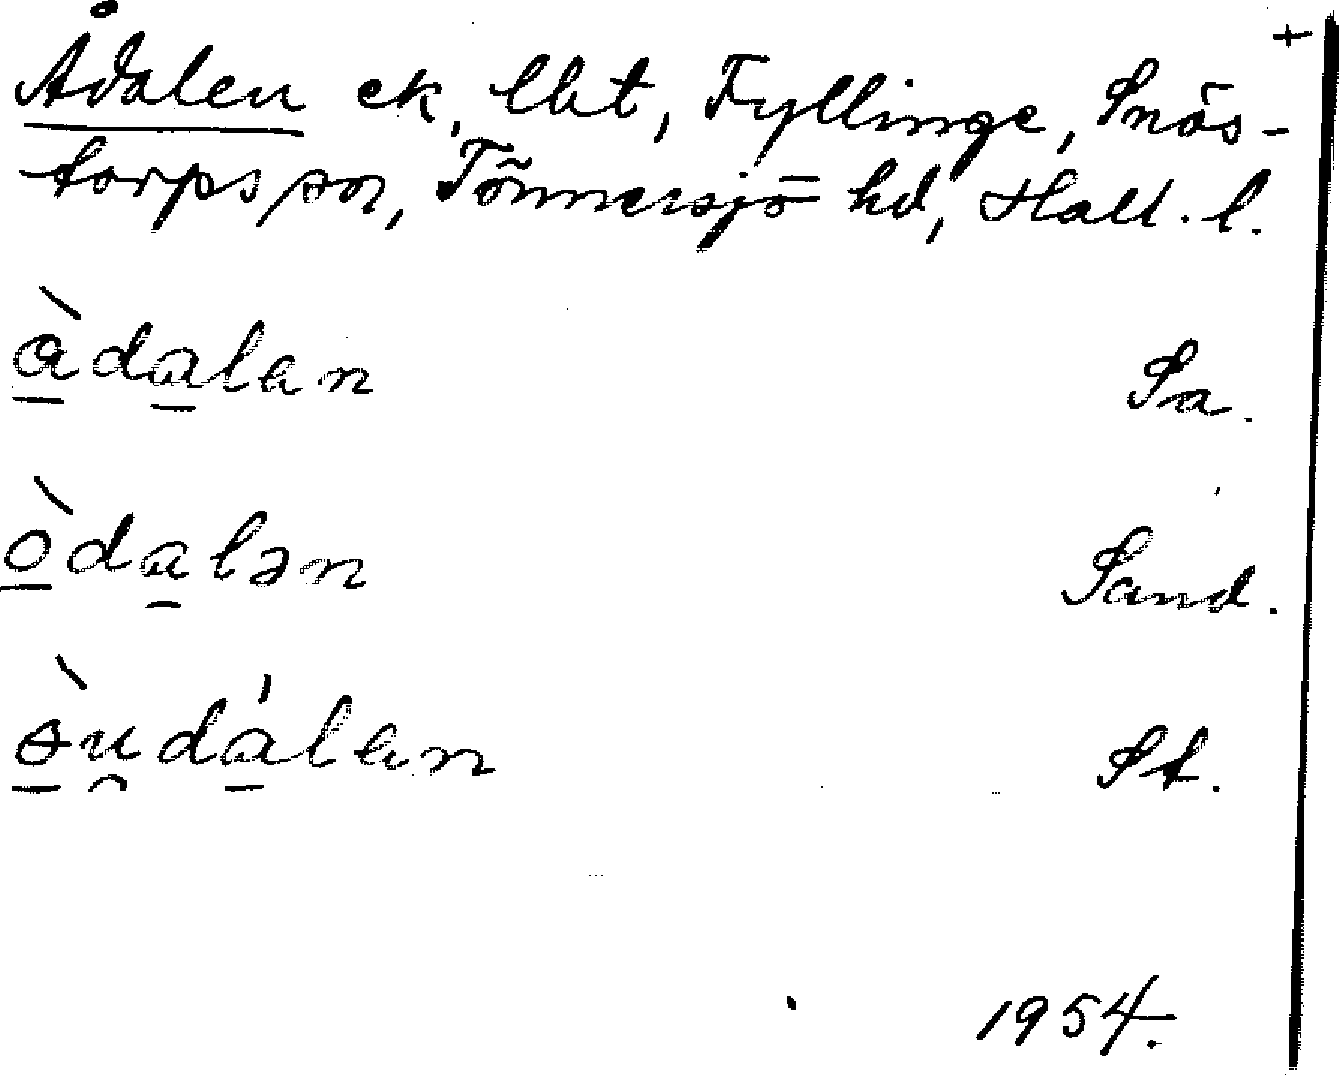 +
Ådalen ek, lht, Fyllinge, Snös-
torps sn, Tönnersjö hd, Hall. l.
àdalan Sa.
òdalən Sand.
òu̯dálan St.
1954.